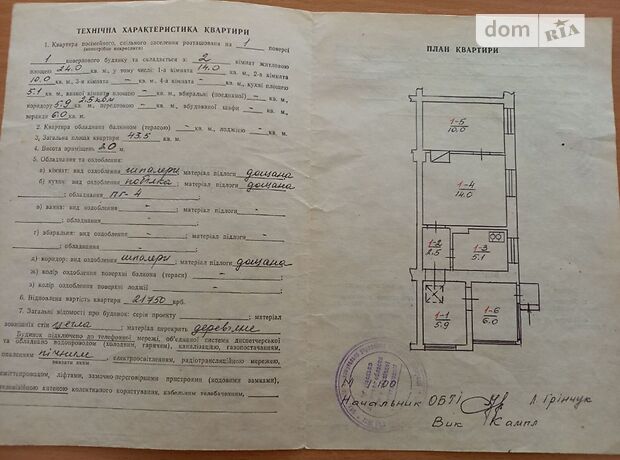 dom RIA
ТЕХНІЧНА ХАРАКТЕРИСТИКА КВАРТИРИ
1. Квартира посімейного, спільного заселення розташована на 1 поверсі
(непотрібне викреслити)
1 поверхового будинку та складається з: 2 кімнат житловою
площею 24.0 кв. м, у тому числі: 1-а кімната 14.0 кв. м, 2-а кімната
10.0 кв. м, 3-я кімната — кв. м, 4-а кімната — кв. м, кухні площею
5.1 кв. м, ванної кімнати площею — кв. м, вбиральні (поєднаної) — кв. м,
коридору 5.9 2.5 кв. м, передпокою — кв. м, вбудованої шафи — кв. м,
веранди 6.0 кв. м.
2. Квартира обладнана балконом (терасою) — кв. м, лоджією — кв. м.
3. Загальна площа квартири 43.5 кв. м.
4. Висота приміщень 2.0 м.
5. Обладнання та оздоблення:
а) кімнат: вид оздоблення шпалери; матеріал підлоги дощана
б) кухні: вид оздоблення побілка; матеріал підлоги дощана
; обладнання пг-4
в) ванна: вид оздоблення —; матеріал підлоги —
; обладнання —
г) вбиральня: вид оздоблення —; матеріал підлоги —
; обладнання —
д) коридор: вид оздоблення шпалери; матеріал підлоги дощана
ж) колір оздоблення поверхні балкона (тераси) —
з) колір оздоблення поверхні лоджії —
6. Відновлена вартість квартири 21750 крб.
7. Загальні відомості про будинок: серія проекту —, матеріал
зовнішніх стін цегла; матеріал перекрить дерев'яне
Будинок підключено до телефонної мережі, об'єднаної системи диспетчерської
та обладнано водопроводом (холодним, гарячим), каналізацією, газопостачанням,
опаленням пічним, електроосвітленням, радіотрансляційною мережею,
вказати яким
сміттєпроводом, ліфтами, замочно-переговорними пристроями (кодовими замками),
телевізійною антеною колективного користування, кабельним телебаченням,
ПЛАН КВАРТИРИ
1-5
10.0
1-4
14.0
1-2
2.5
1-3
5.1
1-1
5.9
1-6
6.0
М 1:100
Начальник ОБТІ Л. Грінчук
Вик Кампл